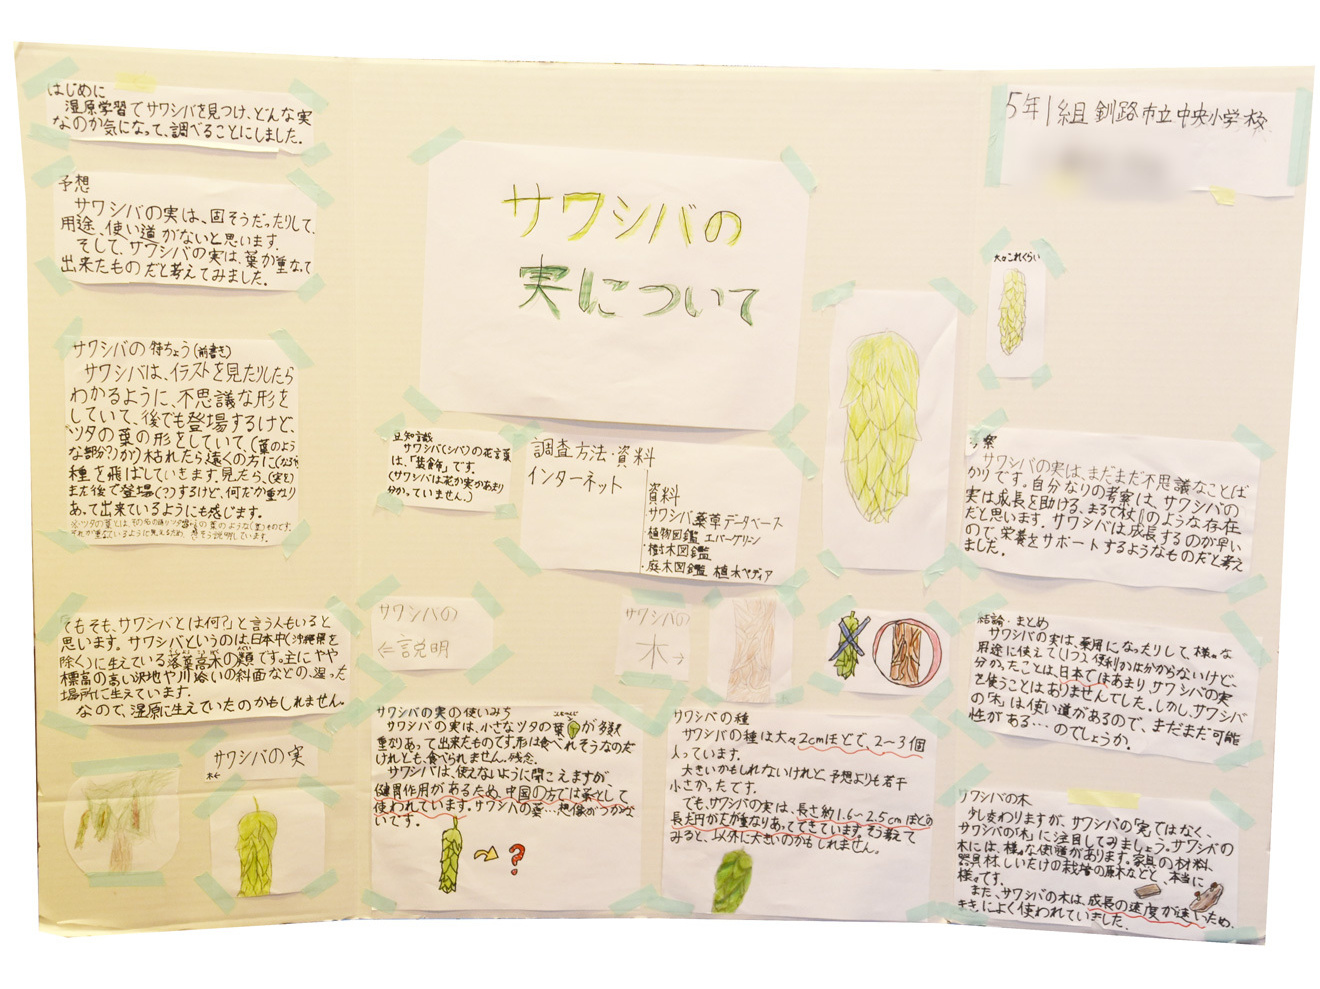 はじめに
湿原学習でサワシバを見つけ、どんな実
なのか気になって、調べることにしました。
予想
サワシバの実は、固そうだったりして、
用途、使い道がないと思います。
そして、サワシバの実は、葉が重なって
出来たものだと考えてみました。
サワシバの特ちょう(前書き)
サワシバは、イラストを見たりしたら
わかるように、不思議な形を
していて、後でも登場するけど、
ツタの葉の形をしていて、(葉のよう
な部分?)が枯れたら遠くの方に
種を飛ばしていきます。見たら、(実を)
また後で登場(?)するけど、何だか重なり
あって出来ているようにも感じます。
そもそも、サワシバとは何?と言う人もいると
思います。サワシバというのは、日本中(沖縄県を
除く)に生えている落葉高木の類です。主にやや
標高の高い沢地や川沿いの斜面などの、湿った
場所に生えています。
なので、湿原に生えていたのかもしれません。
サワシバの実
木←
サワシバの
実について
豆知識
サワシバ(シバ)の花言葉
は、「装飾」です。
(サワシバは花か実かあまり
分かっていません。)
調査方法・資料
インターネット
資料
サワシバ薬草データベース
植物図鑑 エバーグリーン
・樹木図鑑
・庭木図鑑 植木ペディア
サワシバの
⇐説明
サワシバの
木→
サワシバの実の使いみち
サワシバの実は、小さなツタの葉が多数
重なりあって出来たものです。形は食べれそうなのだ
けれども、食べられません。残念。
サワシバは、使えないように聞こえますが
健胃作用があるため、中国の方では薬として
使われています。サワシバの薬…想像がつかな
いです。
?
サワシバの種
サワシバの種は大々2cmほどで、2〜3個
入っています。
大きいかもしれないけれど、予想よりも若干
小さかったです。
でも、サワシバの実は、長さ約1.6〜2.5cmほどの
長だ円がたが重なりあってできています。そう考えて
みると、以外に大きいのかもしれません。
5年1組 釧路市立中央小学校
大々これくらい
考察
サワシバの実は、まだまだ不思議なことば
かりです。自分なりの考察は、サワシバの
実は成長を助ける、まるで杖のような存在
だと思います。サワシバは成長するのが早い
ので、栄養をサポートするようなものだと考え
ました。
結論・まとめ
サワシバの実は、薬用になったりして、様々な
用途に使えて(?)便利かは分からないけど、
分かったことは、日本ではあまり、サワシバの実
を使うことはありませんでした。しかし、サワシバ
の「木」は使い道があるので、まだまだ可能
性がある…のでしょうか。
サワシバの木
少し変わりますが、サワシバの「実」ではなく、
サワシバの「木」に注目してみましょう。サワシバの
木には、様々な使道があります。家具の材料、
器具材、しいたけの栽培の原木などと、本当に
様々です。
また、サワシバの木は、成長の速度が速いため、
まきによく使われていました。